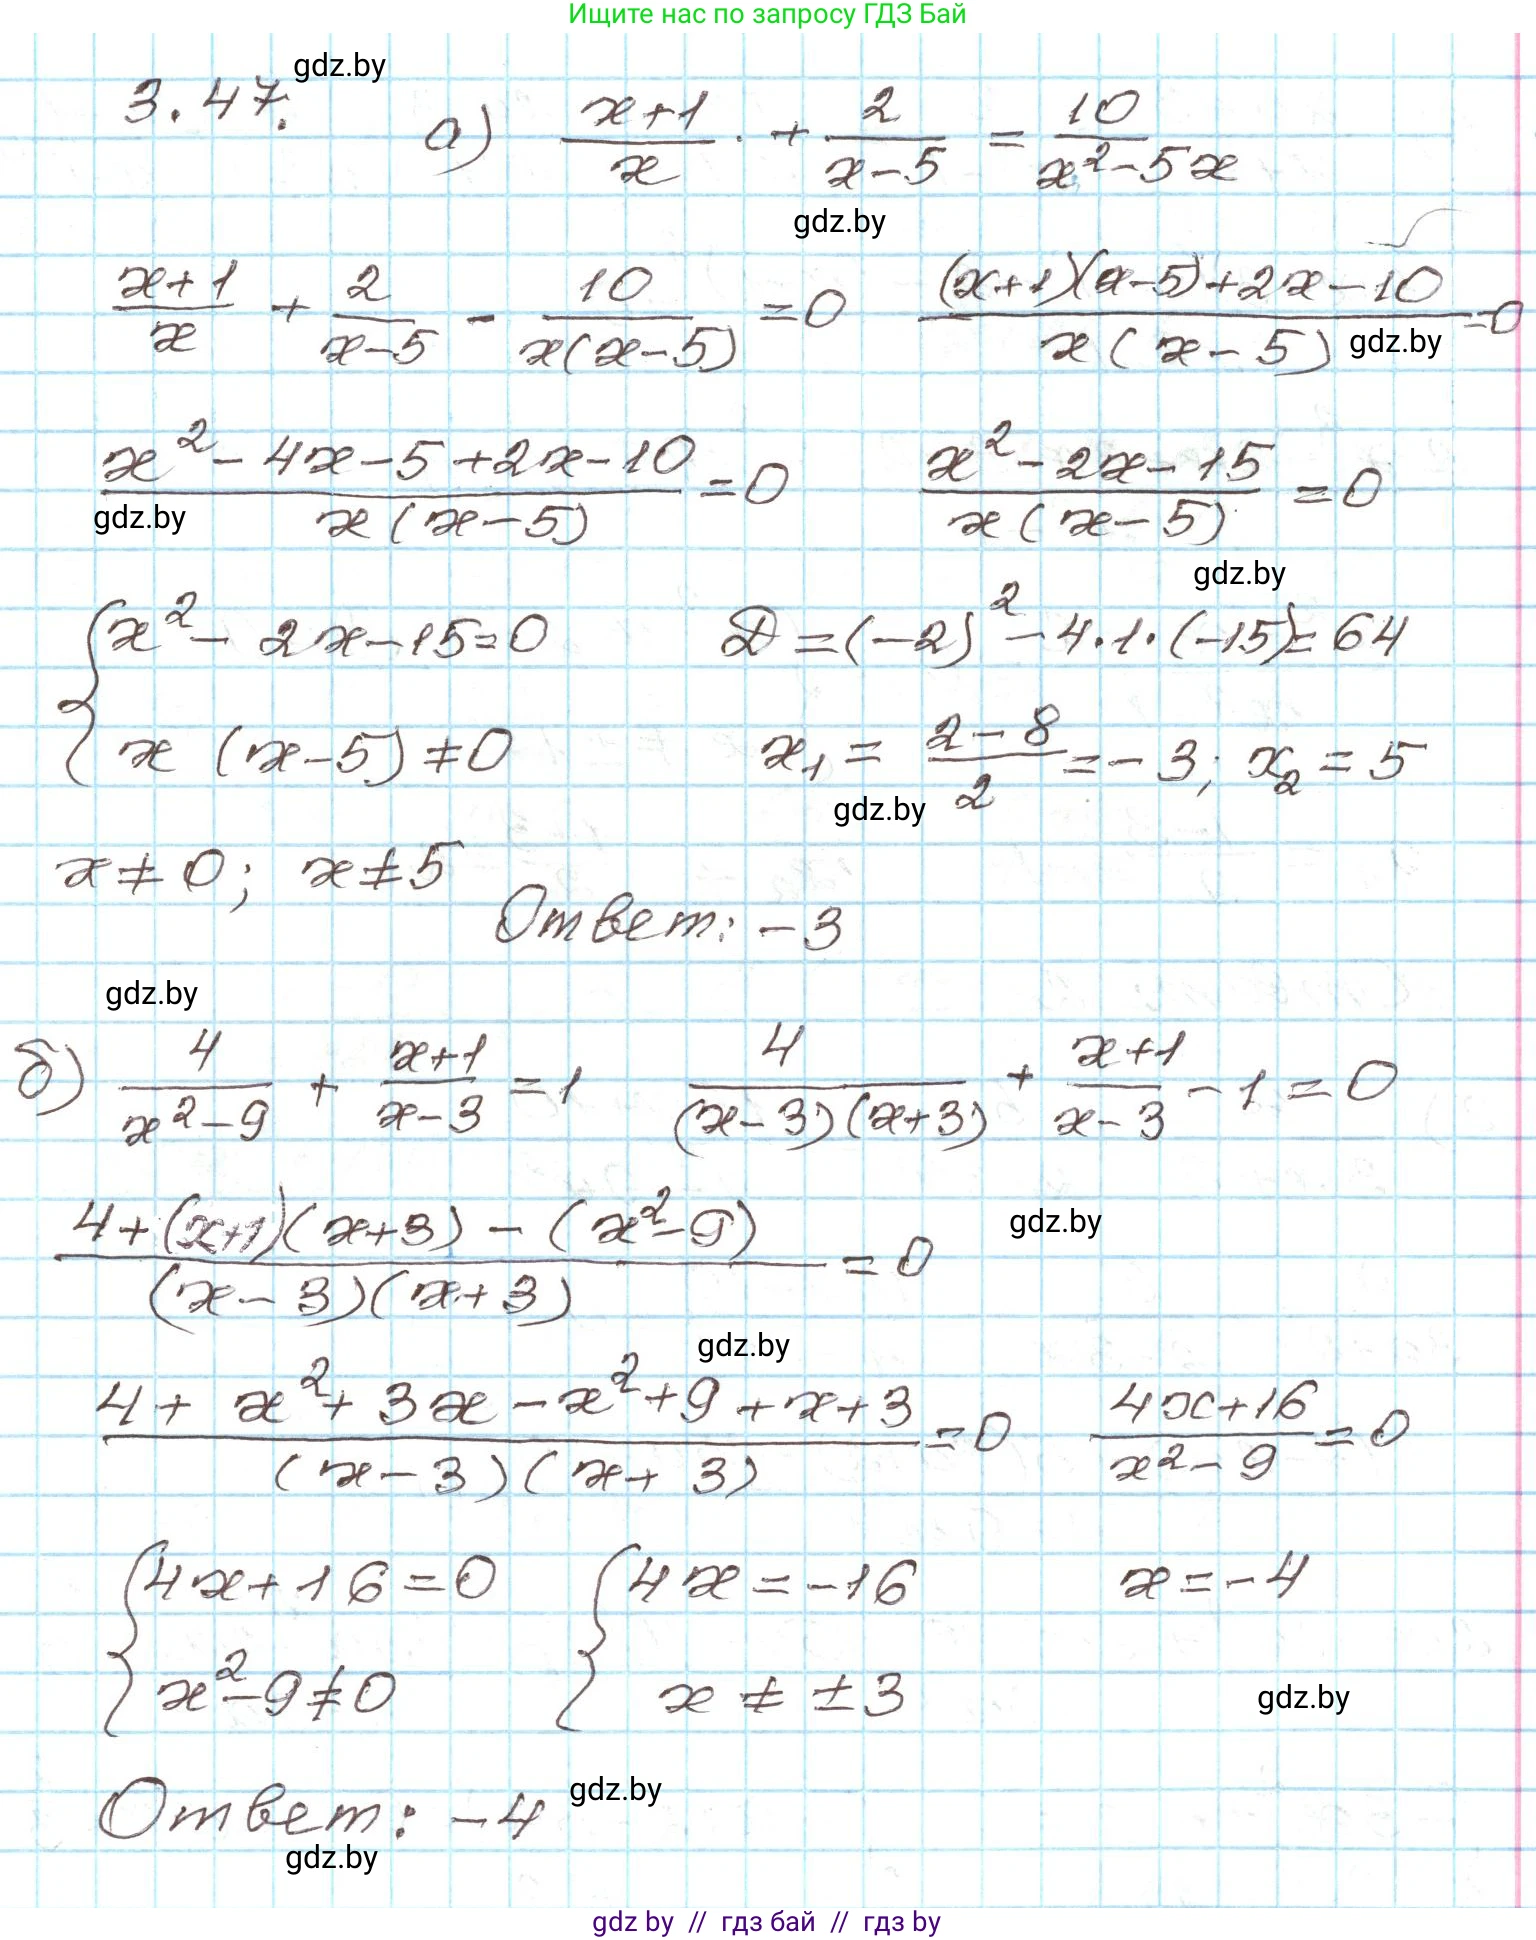 Ищите нас по запросу ГДЗ Бай
gdz.by
3.47. а) (x+1)/x + 2/(x-5) = 10/(x²-5x)
gdz.by
(x+1)/x + 2/(x-5) - 10/(x(x-5)) =0 ((x+1)(x-5)+2x-10)/(x(x-5)) =0
gdz.by
(x²-4x-5+2x-10)/(x(x-5)) =0 (x²-2x-15)/(x(x-5)) =0
gdz.by
gdz.by
{x²-2x-15=0 D=(-2)²-4·1·(-15)=64
x(x-5)≠0 x₁=(2-8)/2=-3; x₂=5
gdz.by
x≠0; x≠5
Ответ: -3
gdz.by
б) 4/(x²-9) + (x+1)/(x-3) =1 4/((x-3)(x+3)) + (x+1)/(x-3) -1=0
(4+(x+1)(x+3)-(x²-9))/((x-3)(x+3)) =0
gdz.by
gdz.by
(4+x²+3x-x²+9+x+3)/((x-3)(x+3)) =0 (4x+16)/(x²-9) =0
{4x+16=0 {4x=-16 x=-4
x²-9≠0 x≠±3
gdz.by
gdz.by
Ответ: -4
gdz.by
gdz by // гдз бай // гдз by